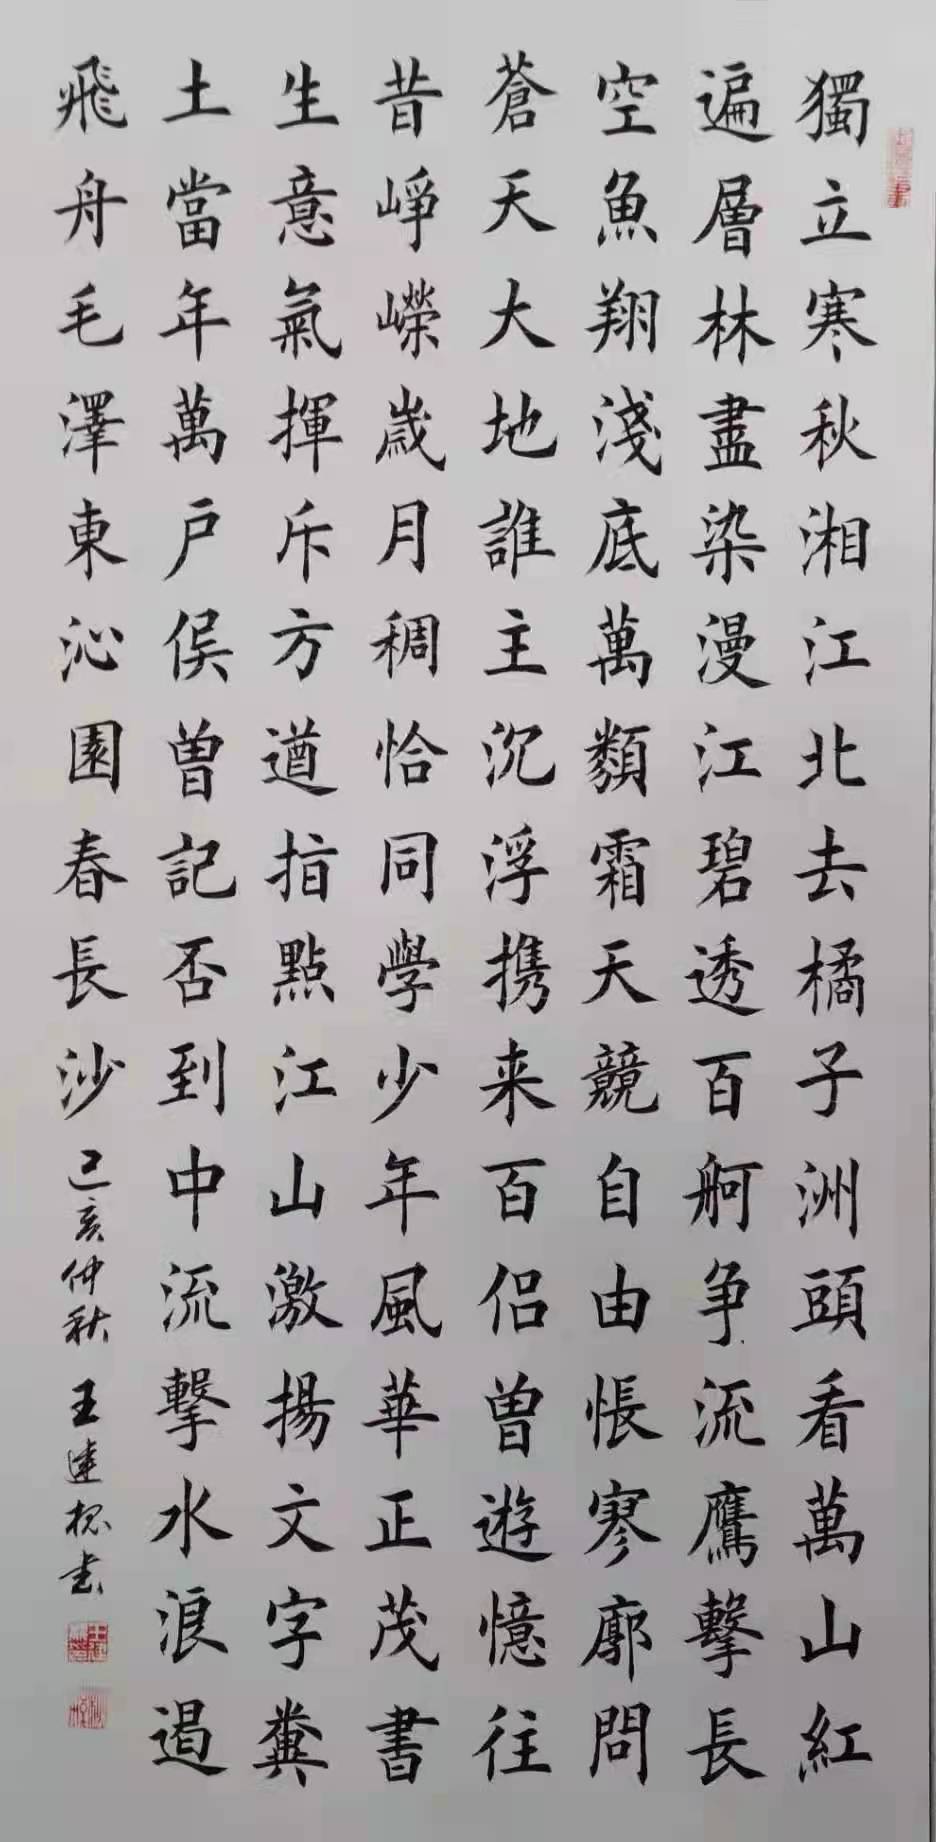 獨立寒秋湘江北去橘子洲頭看萬山紅
遍層林盡染漫江碧透百舸争流鷹擊長
空魚翔淺底萬類霜天競自由悵寥廓問
蒼天大地誰主沉浮携来百侣曽遊憶往
昔崢嶸歲月稠恰同學少年風華正茂書
生意氣揮斥方遒指點江山激揚文字糞
土當年萬户侯曽記否到中流擊水浪遏
飛舟毛澤東沁園春長沙己亥仲秋王建書